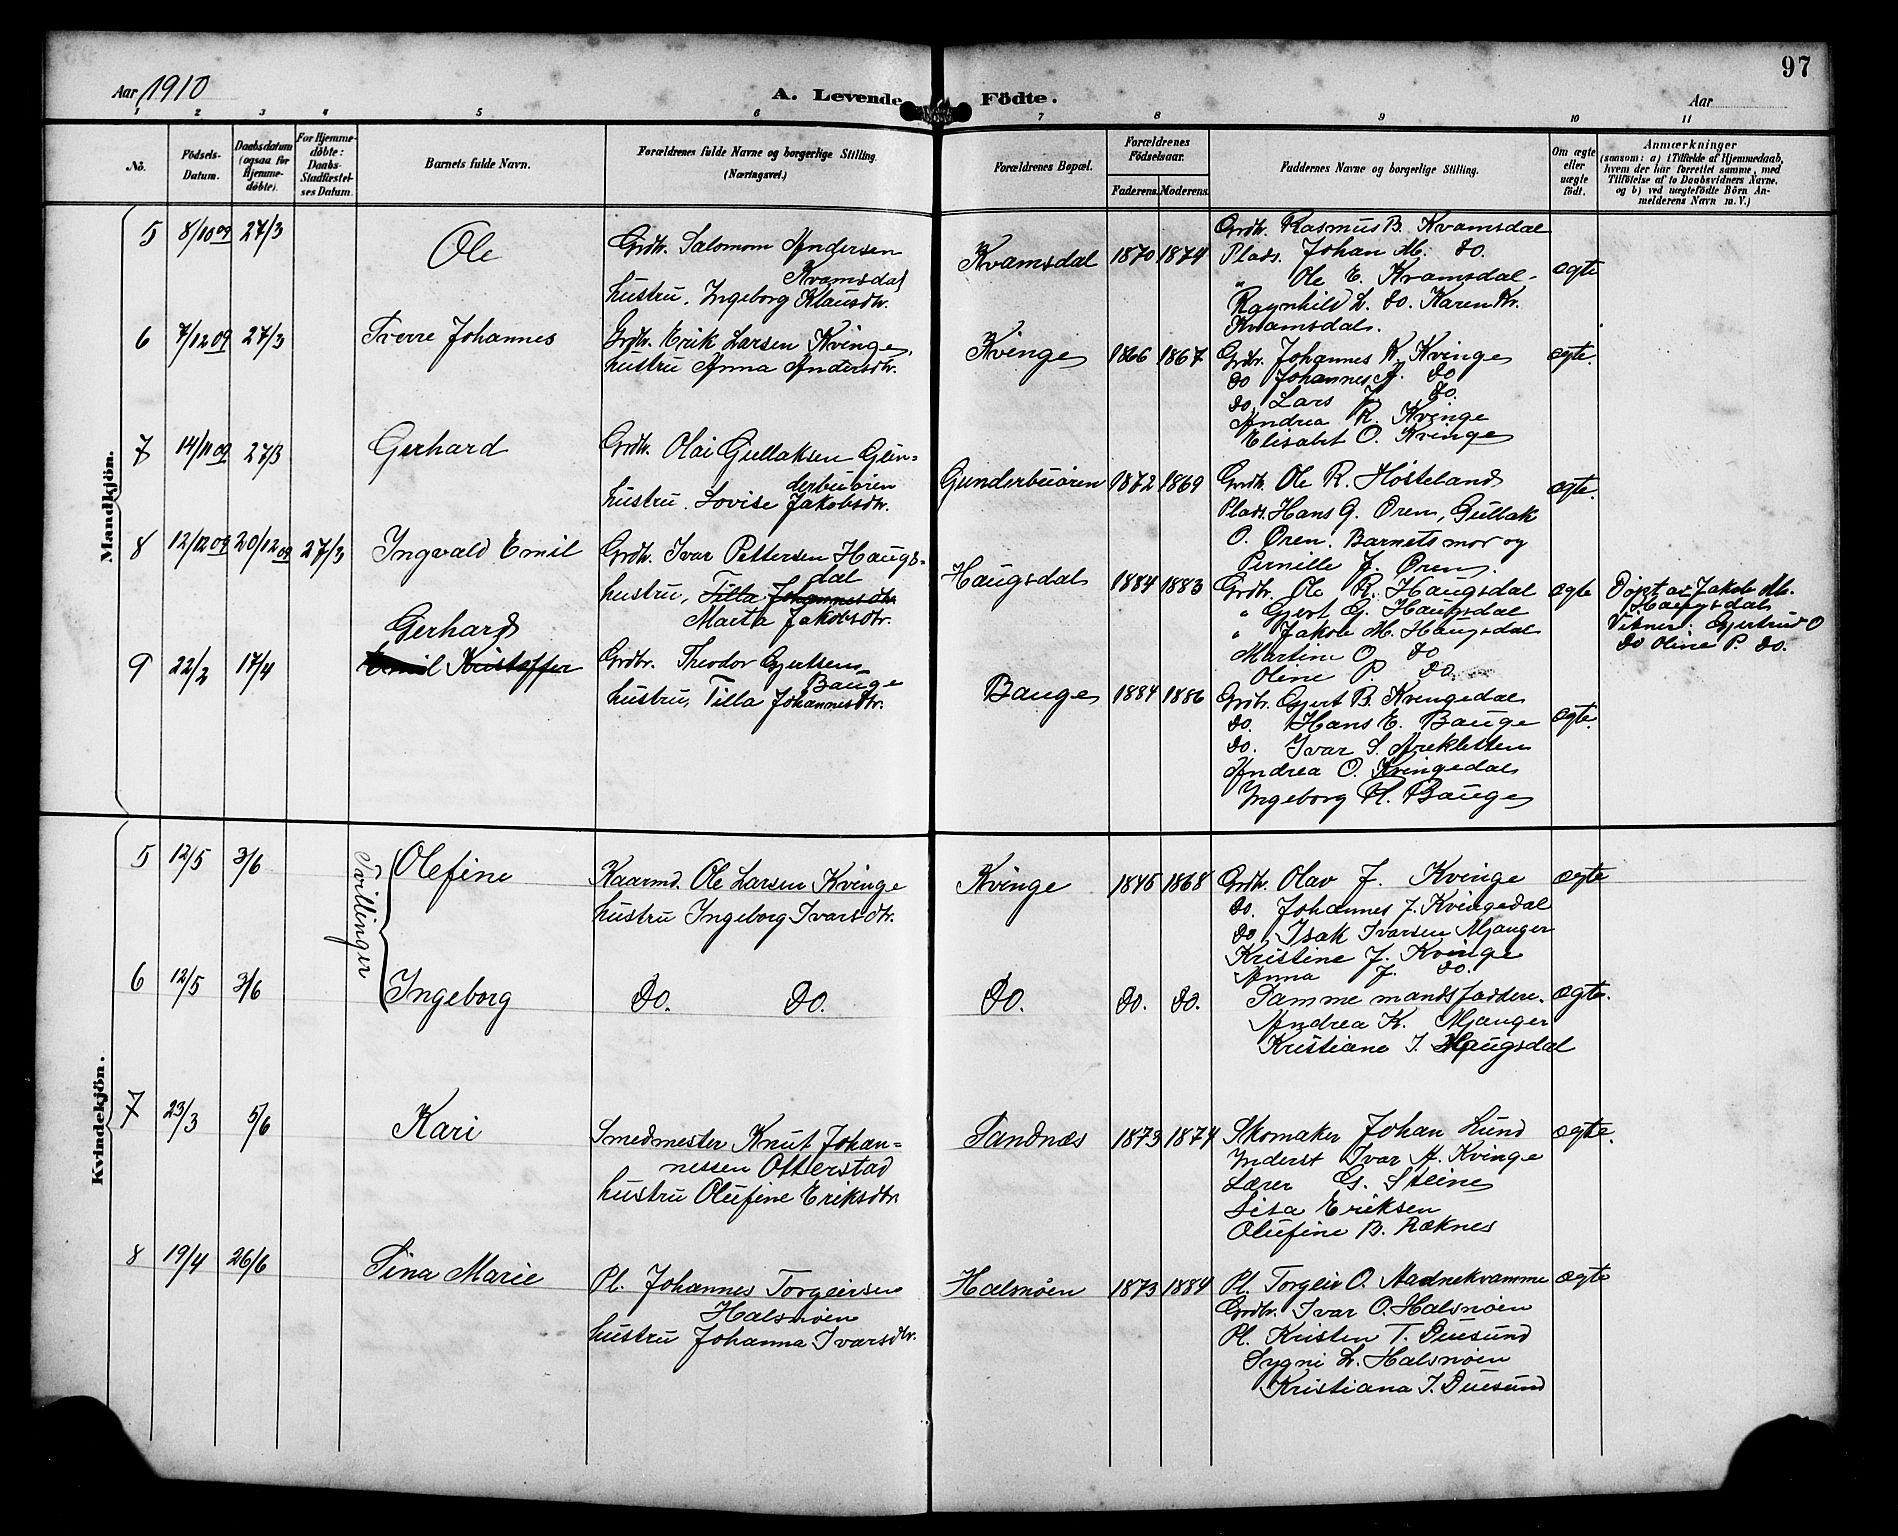 97
Aar 1910
A. Levende Födte.
Aar
1 2 3 4 5 6 7 8 9 10 11
No.
Födsels-
Datum.
Daabsdatum
(ogsaa for
Hjemme-
döbte).
For Hjemme-
döbte:
Daabs-
Stadfæstel-
ses Datum.
Barnets fulde Navn.
Forældrenes fulde Navne og borgerlige Stilling.
(Næringsvei.)
Forældrenes Bopæl.
Forældrenes
Födselsaar.
Faderens. Moderens.
Faddernes Navne og borgerlige Stilling.
Om ægte
eller
uægte
födt.
Anmærkninger
(saasom: a) i Tilfælde af Hjemmedaab,
hvem der har forrettet samme, med
Tilföielse af to Daabsvidners Navne,
og b) ved uægtefödte Börn An-
melderens Navn m. V.)
Mandkjön.
5 8/10 09 27/3
Ole
Grdbr. Salomon Andersen
Kvamsdal
hustru. Ingeborg Klausdtr.
Kvamsdal 1870 1874
Grdbr. Rasmus B. Kvamsdal
Plads. Johan M. do.
" Ole E. Kvamsdal
Ragnhild L. do. Karen Kr.
Kvamsdal.
ægte
6 7/12 09 27/3
Sverre Johannes
Grdbr. Erik Larsen Kvinge,
hustru Anna Andersdtr.
Kvinge 1866 1867
Grdbr. Johannes K. Kvinge
do Johannes A. do
do. Lars J. do.
Andrea R. Kvinge
Elisabet O. Kvinge
ægte.
7 14/11 09 27/3
Gerhard
Grdbr. Olai Gullaksen Gun-
derbuören
hustru. Lovise Jakobsdtr.
Gunderbuören 1872 1869
Grdbr. Ole R. Hosteland
Plads. Hans G. Ören, Gullak
O. Ören. Barnets mor og
Pernille J. Ören.
ægte.
8 12/12 09 20/12 09 27/3
Ingvald Emil
Grdbr. Ivar Pettersen Haugs-
dal
hustru, Tilla Johannesdtr.
Marta Jakobsdtr.
Haugsdal 1884 1883
Grdbr. Ole R. Haugsdal
" Gjert G. Haugsdal
" Jakob M. Haugsdal
Martine O. do
Oline P. do.
ægte
Döpt av Jakob M.
Haugsdal
Vitner: Gjertrud O
do Oline P. do.
9 22/2 17/4
Gerhard
Emil Kristoffer
Grdbr. Theodor Gjertsen
Bauge
hustru, Tilla Johannesdtr.
Bauge 1884 1886
Grdbr. Gjert B. Kvingedal
do. Hans E. Bauge
do. Ivar S. Arekletten
Andrea O. Kvingedal
Ingeborg H. Bauge
ægte.
Kvindekjön.
Tvillinger
5 12/5 3/6
Olefine
Kaarmd. Ole Larsen Kvinge
hustru Ingeborg Ivarsdtr.
Kvinge 1845 1868
Grdbr. Olav J. Kvinge
do. Johannes J. Kvingedal
do Isak Ivarsen Mjanger
Kristine J. Kvinge
Anna J. do.
ægte
6 12/5 3/6
Ingeborg
do. do.
do. do. do.
Samme mandsfaddere.
Andrea K. Mjanger
Kristiane I. Haugsdal
ægte.
7 23/3 5/6
Kari
Smedmester Knut Johan-
nessen Otterstad
hustru Olufine Eriksdtr.
Sandnæs 1873 1874
Skomaker Johan Lund
Inderst Ivar A. Kvinge
Lærer G. Steine
Lisa Eriksen
Olufine B. Ræknes
ægte.
8 19/4 26/6
Sina Marie
Pl. Johannes Torgeirsen
Halsnöen
hustru Johanna Ivarsdtr.
Halsnöen 1873 1884
Pl. Torgeir O. Nadnekvamme
Grdbr. Ivar O. Halsnöen
Pl. Kristen T. Duesund
Sygni L. Halsnöen
Kristiana I. Duesund
ægte